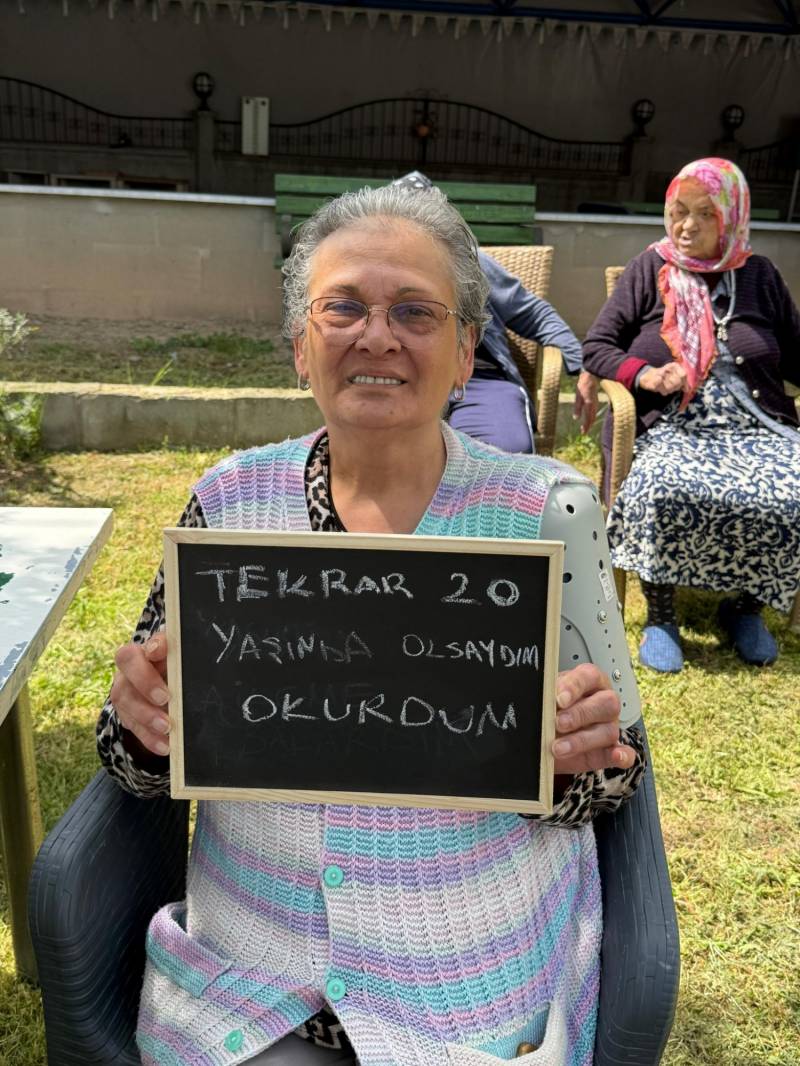 TEKRAR 20
YAŞINDA OLSAYDIM
OKURDUM